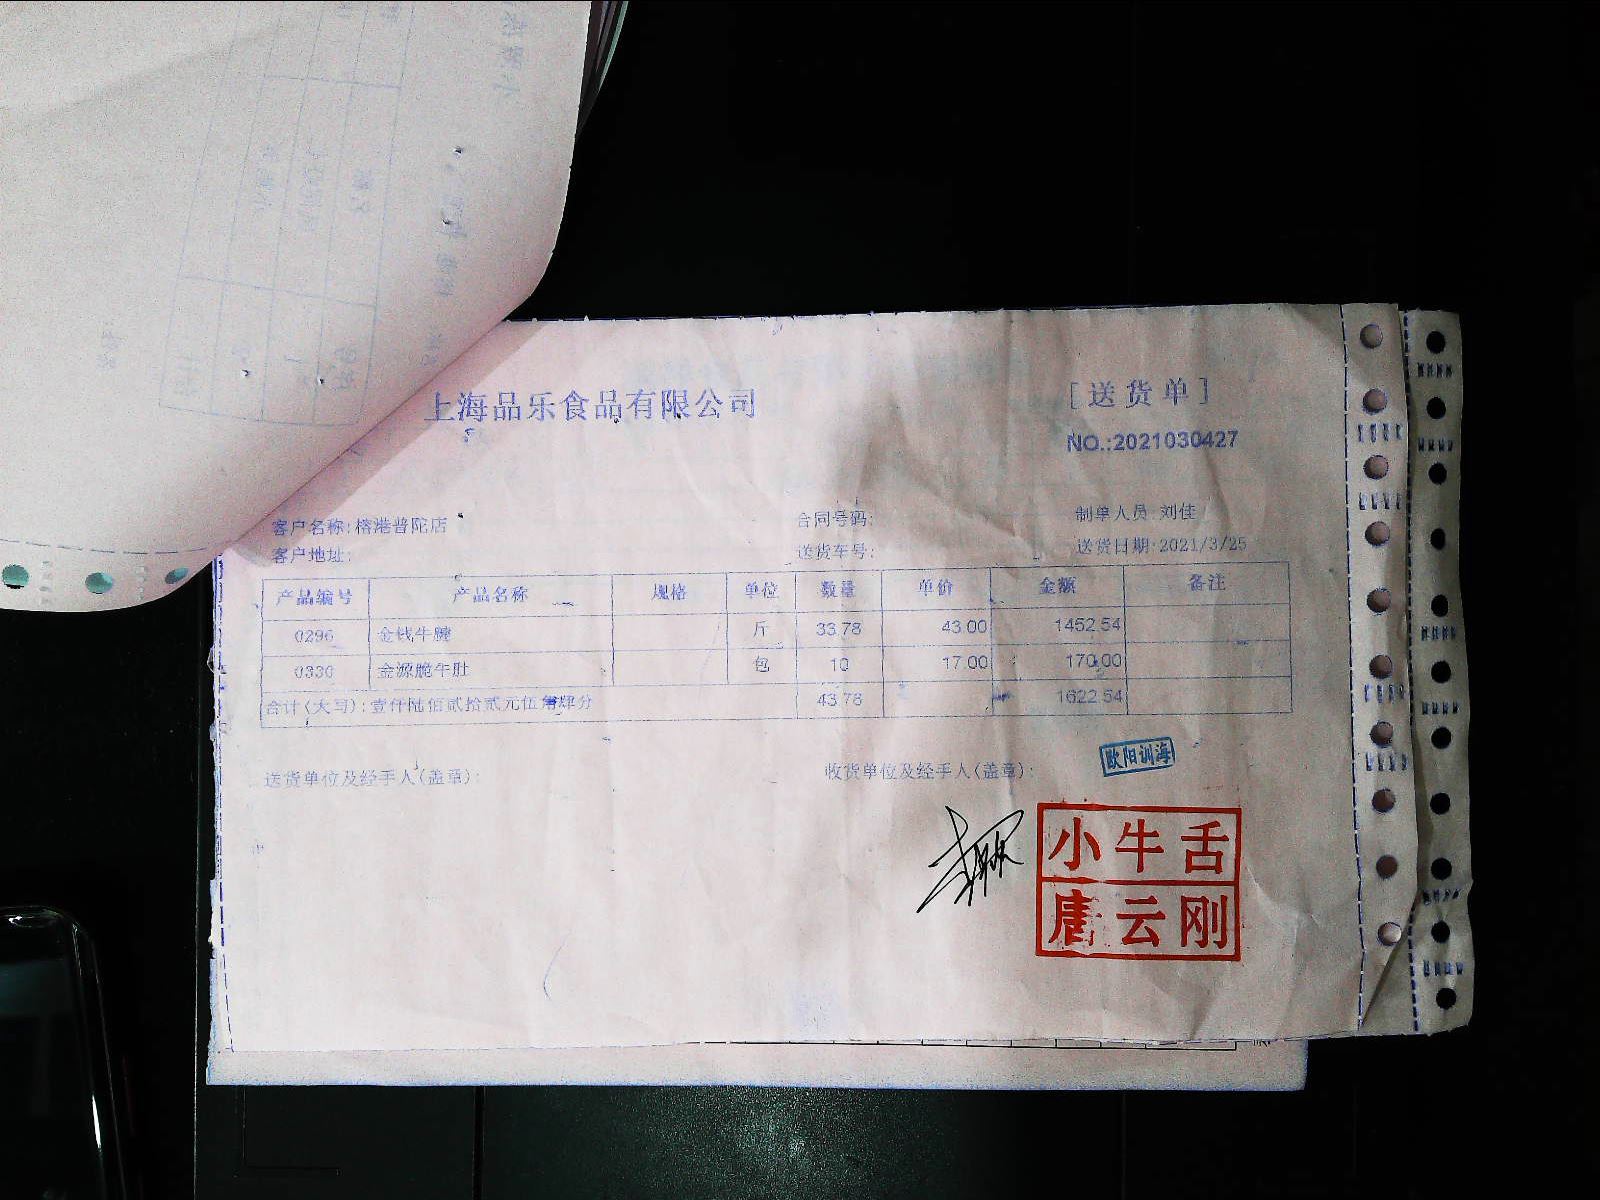 上海品乐食品有限公司
[送货单]
NO.:2021030427
客户名称:榕港普陀店
合同号码:
制单人员:刘佳
客户地址:
送货车号:
送货日期:2021/3/25
产品编号 产品名称 规格 单位 数量 单价 金额 备注
0296 金钱牛腱 斤 33.78 43.00 1452.54
0330 金源脆牛肚 包 10 17.00 170.00
合计(大写):壹仟陆佰贰拾贰元伍角肆分 43.78 1622.54
送货单位及经手人(盖章):
收货单位及经手人(盖章):
欧阳训海
小牛舌
唐云刚